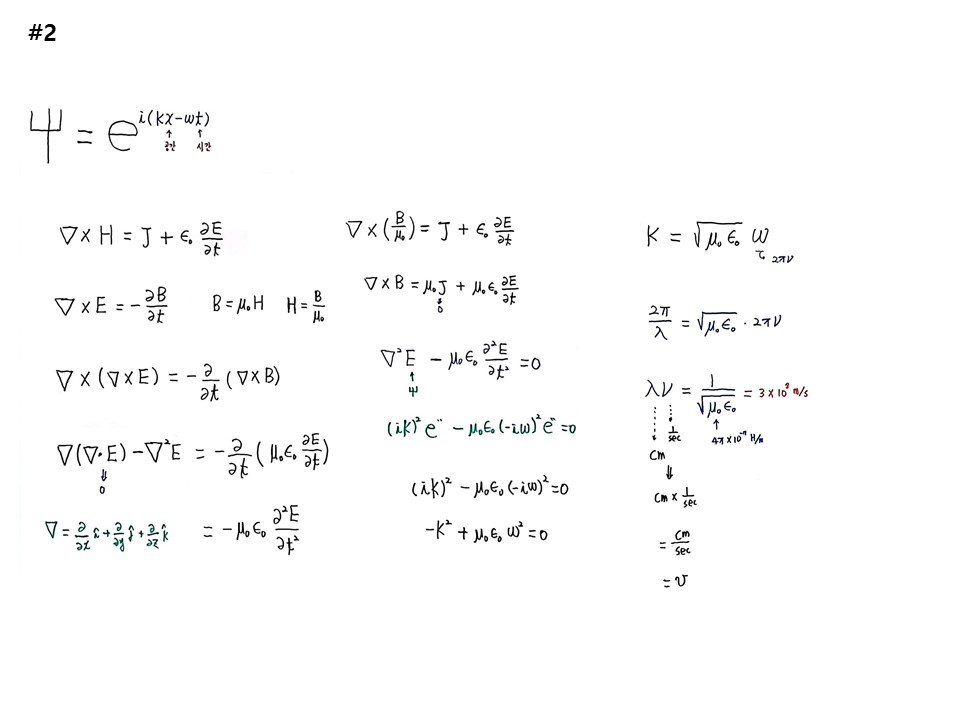 #2
Ψ = e^{i(kx-ωt)}
공간 시간
∇×H = J + ϵ₀ ∂E/∂t
∇×E = -∂B/∂t B=μ₀H H=B/μ₀
∇×(∇×E) = -∂/∂t (∇×B)
∇(∇·E)-∇²E = -∂/∂t (μ₀ϵ₀ ∂E/∂t)
⇓
0
∇=∂/∂x î+∂/∂y ĵ+∂/∂z k̂ = -μ₀ϵ₀ ∂²E/∂t²
∇×(B/μ₀) = J + ϵ₀ ∂E/∂t
∇×B = μ₀J + μ₀ϵ₀ ∂E/∂t
0
∇²E - μ₀ϵ₀ ∂²E/∂t² =0
↑
Ψ
(ik)² e^{··} - μ₀ϵ₀(-iω)² e^{··}=0
(ik)² - μ₀ϵ₀(-iω)²=0
-k² + μ₀ϵ₀ω²=0
K = √μ₀ϵ₀ ω
2πν
2π/λ = √μ₀ϵ₀ · 2πν
λν = 1/√μ₀ϵ₀ = 3×10⁸ m/s
↑
1/sec 4π×10⁻⁷ H/m
cm
⇓
cm × 1/sec
= cm/sec
= v